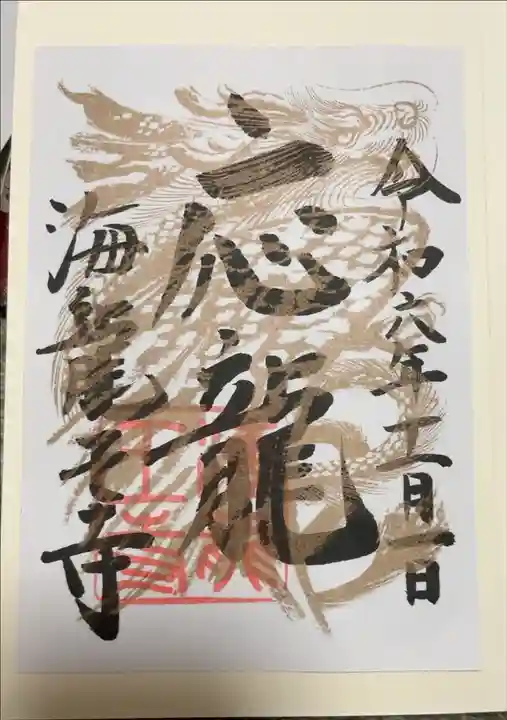 令和六年十一月一日
応龍
海龍王寺